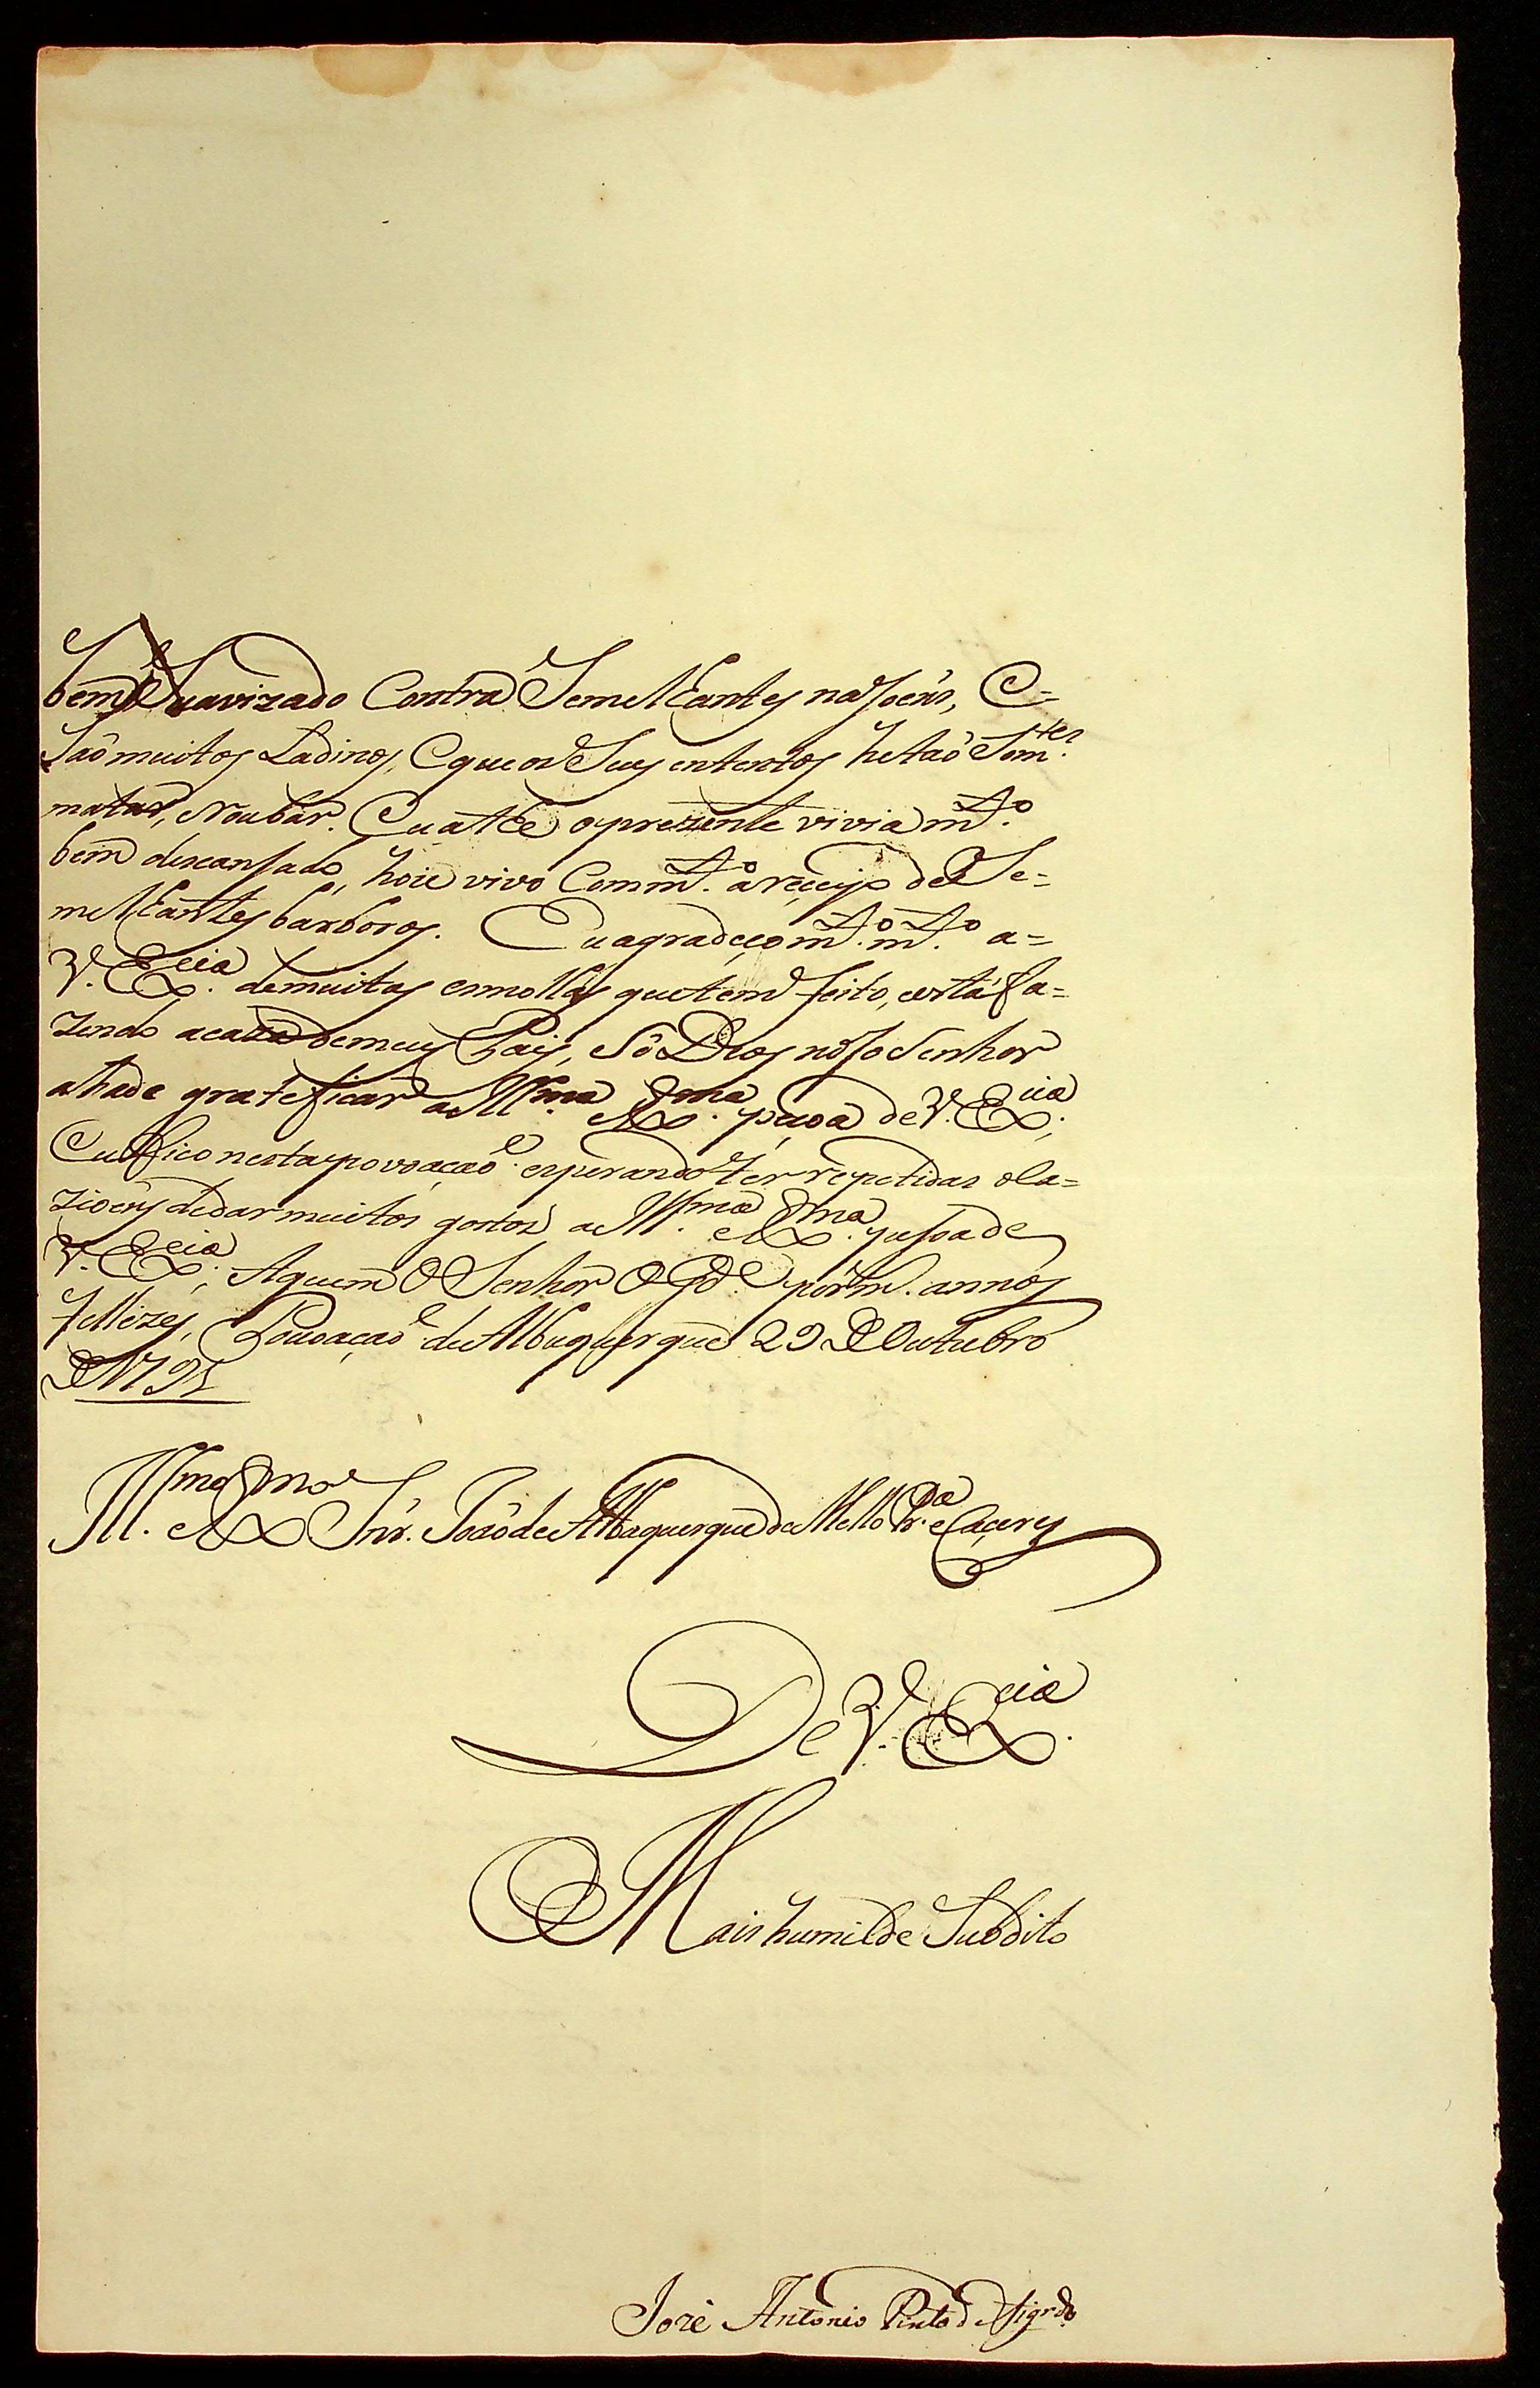 bem Suavizado Contra SemelEantes nasoens, E=
Saõ muitos Ladinos, E que os Seus ententos he taõ Som.tes
matar, e Roubar. Eu athe o prezente vivia m.to
bem descansado, hoie vivo Com m.to a receijo de Se=
melEantes barboros. Eu agradeço m.to m.to a=
V. Ex.cia de muitas esmollas que tem feito, e está fa=
zendo a caza de meus Pais, Só Deos noso Senhor
a hade grateficar a Ill.ma e Ex.ma peçoa de V. Ex.cia;
Eu fico nesta povoaçaõ esperando ter repetidas ola=
zioens de dar muitos gostos a Ill.ma e Ex.ma pesoa de
V. Ex.cia; Aquem O Senhor G.de por m. annos
fellizes, Povoaçaõ de Albuquerque 29 De Outubro
De 1791
Ill.mo e Ex.mo Snr. Joaõ de Albuquerque de Mello Pr.a e Caçeres
De V. Ex.cia
O Mais humilde Subdito
Joze Antonio Pinto de Figr.do